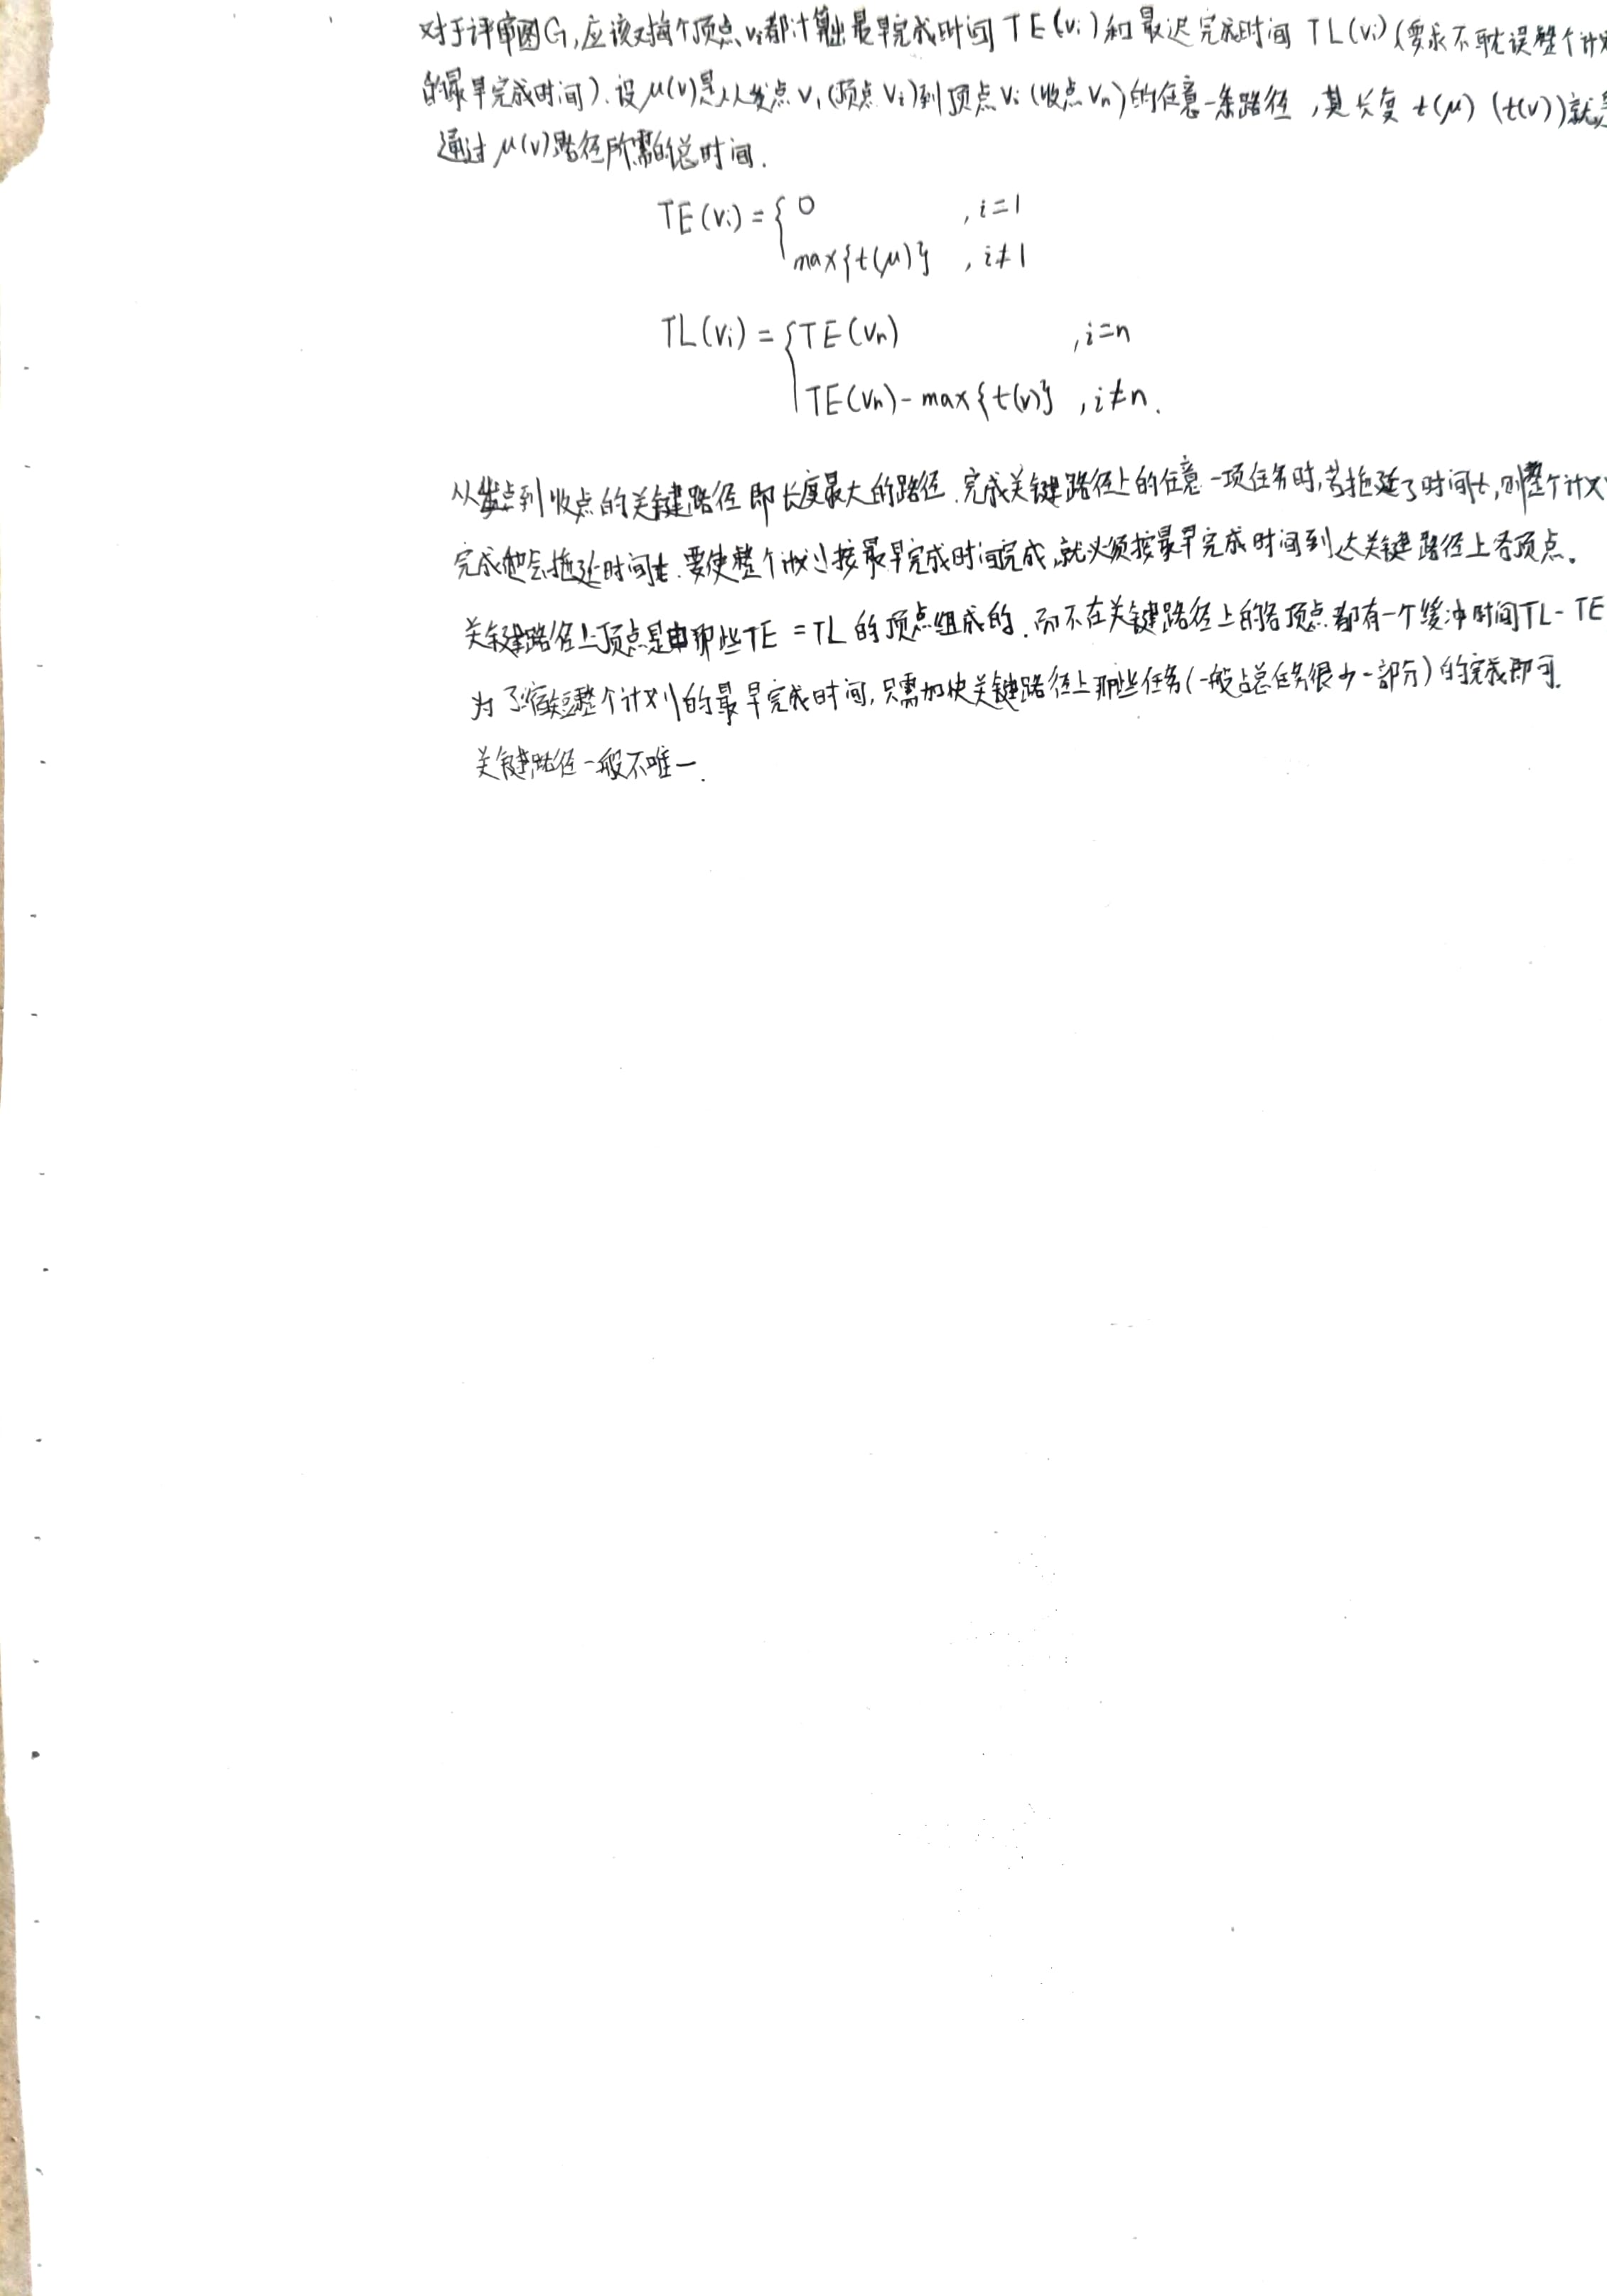 对于评审图G,应该对每个顶点vi都计算出最早完成时间TE(vi)和最迟完成时间TL(vi)(要求不耽误整个计划
的最早完成时间).设μ(ν)是从发点v1(顶点vi)到顶点vi(收点vn)的任意一条路径,其长度t(μ)(t(ν))就是
通过μ(ν)路径所需的总时间.
TE(vi)={0 ,i=1
max{t(μ)} ,i≠1
TL(vi)={TE(vn) ,i=n
TE(vn)-max{t(ν)} ,i≠n.
从发点到收点的关键路径即长度最大的路径.完成关键路径上的任意一项任务时,若拖延了时间t,则整个计划
完成也会拖延时间t.要使整个计划按最早完成时间完成,就必须按最早完成时间到达关键路径上各顶点。
关键路径上顶点是由那些TE=TL的顶点组成的.而不在关键路径上的各顶点都有一个缓冲时间TL-TE
为了缩短整个计划的最早完成时间,只需加快关键路径上那些任务(一般占总任务很少一部分)的完成即可.
关键路径一般不唯一.